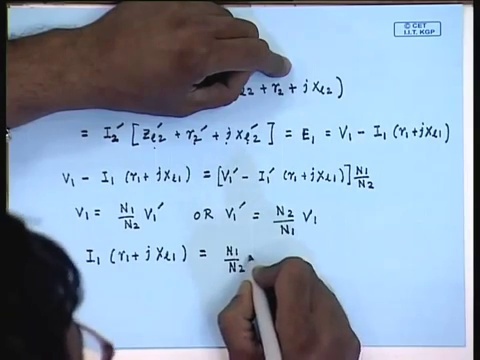 © CET
I.I.T. KGP
+ r2 + j xl2)
= I2' [ Zl2' + r2' + j xl2' ] = E1 = V1 - I1 (r1 + j xl1)
V1 - I1 (r1 + j xl1) = [V1' - I1' (r1 + j xl1)] N1/N2
V1 = N1/N2 V1' OR V1' = N2/N1 V1
I1 (r1 + j xl1) = N1/N2